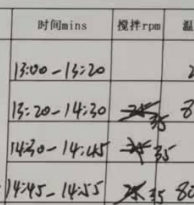 时间mins 搅拌rpm 温
13:00-13:20 2
13:20-14:30 35 8
14:30-14:45 35
14:45-14:55 35 80